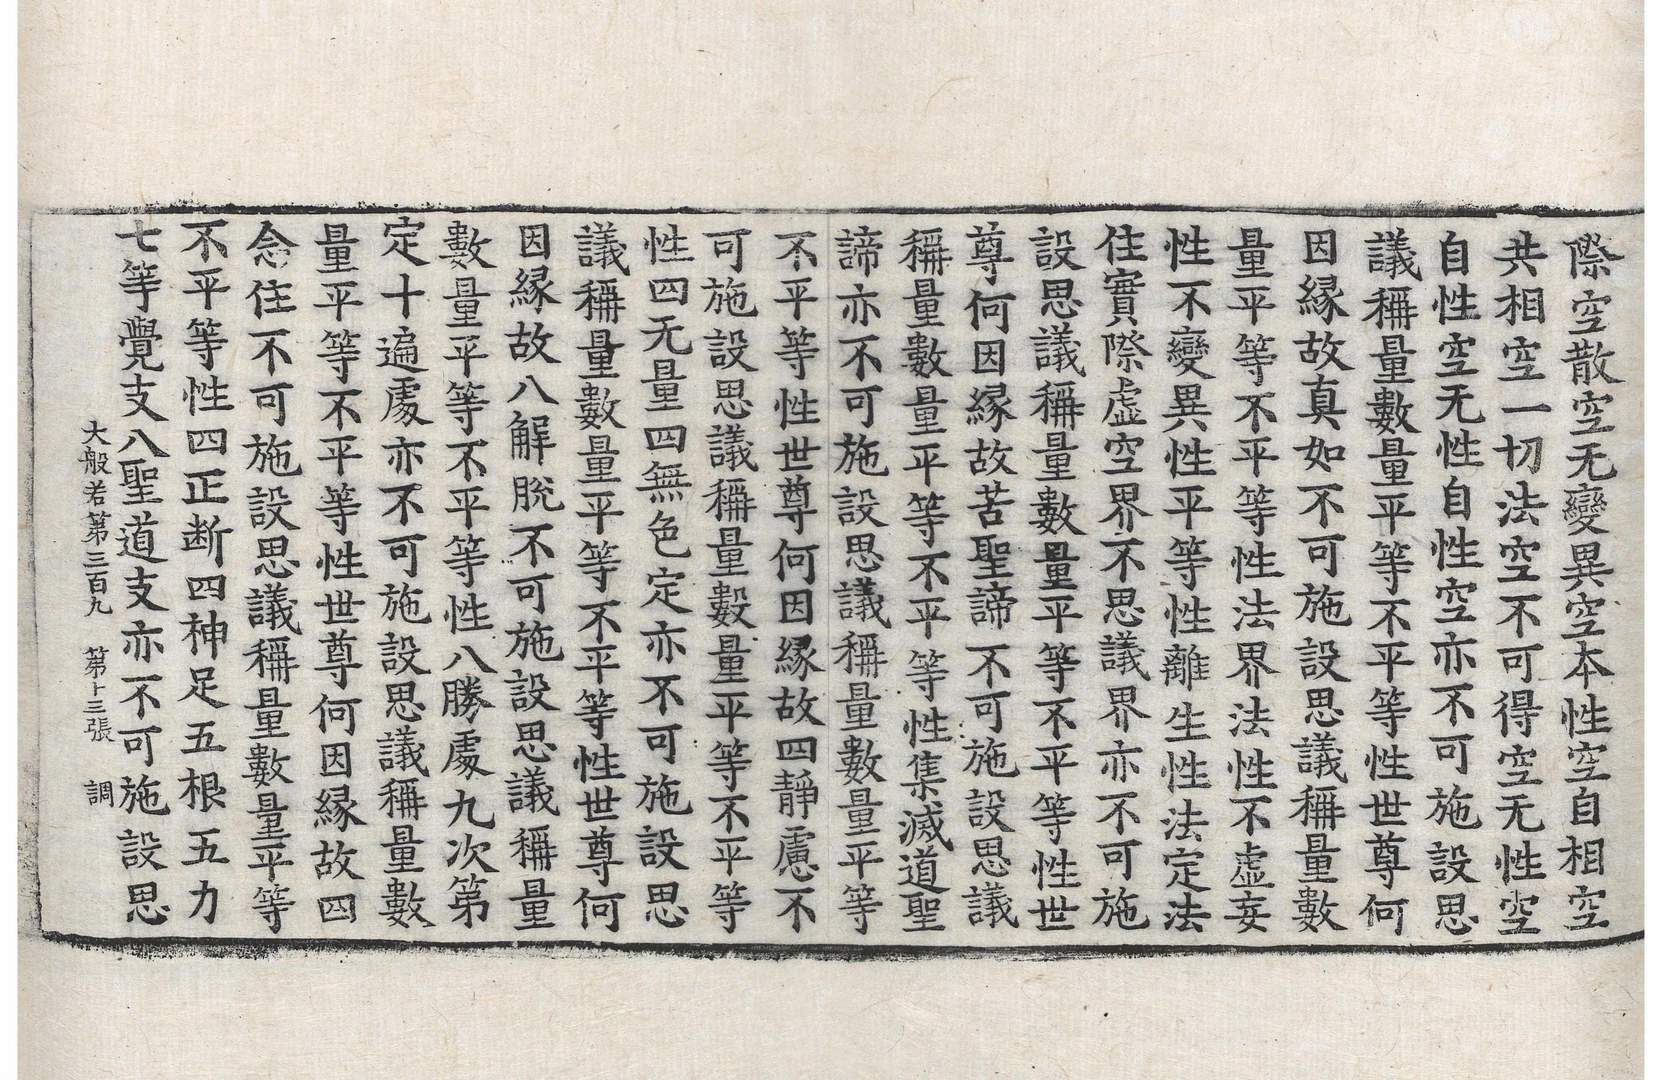 際空散空无變異空本性空自相空
共相空一切法空不可得空无性空
自性空无性自性空亦不可施設思
議稱量數量平等不平等性世尊何
因緣故真如不可施設思議稱量數
量平等不平等性法界法性不虛妄
性不變異性平等性離生性法定法
住實際虛空界不思議界亦不可施
設思議稱量數量平等不平等性世
尊何因緣故苦聖諦不可施設思議
稱量數量平等不平等性集滅道聖
諦亦不可施設思議稱量數量平等
不平等性世尊何因緣故四靜慮不
可施設思議稱量數量平等不平等
性四无量四無色定亦不可施設思
議稱量數量平等不平等性世尊何
因緣故八解脫不可施設思議稱量
數量平等不平等性八勝處九次第
定十遍處亦不可施設思議稱量數
量平等不平等性世尊何因緣故四
念住不可施設思議稱量數量平等
不平等性四正断四神足五根五力
七等覺支八聖道支亦不可施設思
大般若第三百九 第十三張 調